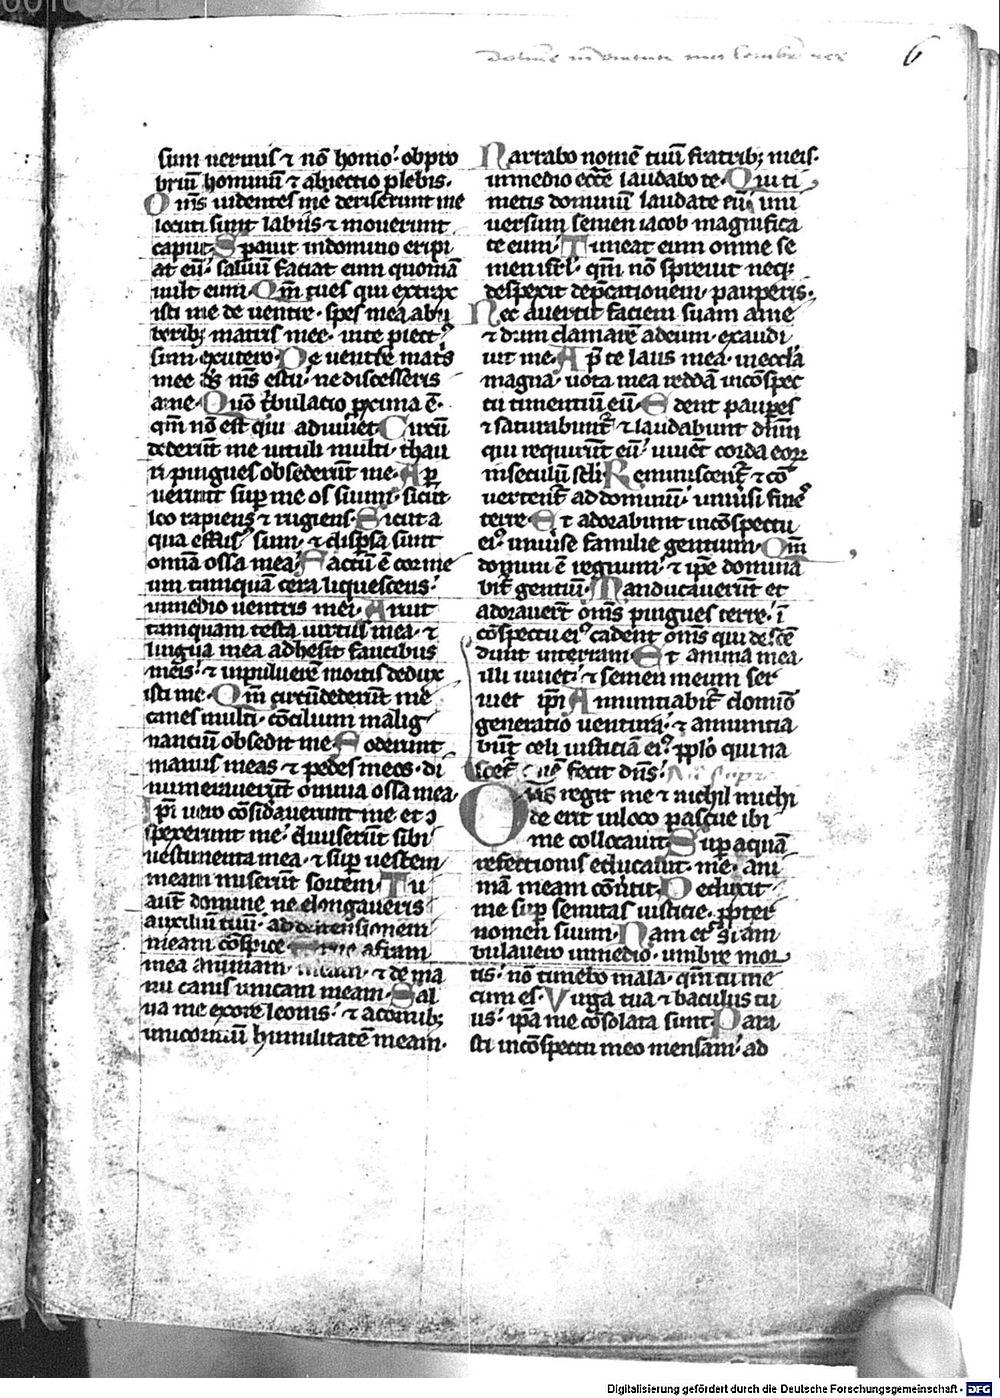 6
sum uermis ⁊ nō homo· obpro
briū hominū ⁊ abiectio plebis·
Om̄s uidentes me deriserunt me
locuti sunt labiis ⁊ mouerunt
caput· Sperauit in domino eripi
at eū· saluū faciat eum quoniā
uult eum· Qm̄ tu es qui extrax
isti me de uentre· spes mea ab u
berib; matris mee· in te p̄iectꝰ
sum ex utero· De uentre mat̄s
mee d̄s m̄s es tu· ne discesseris
a me· Qm̄ t̄bulatio p̄xima ē·
qm̄ nō est qui adiuuet Circū
dederūt me uituli multi· thau
ri pingues obsederūt me· Ap
uerunt sup̄ me os suum· sicut
leo rapiens ⁊ rugiens· Sicut a
qua effusꝰ sum· ⁊ disp̄sa sunt
omnia ossa mea· Factū ē cor me
um tamquā cera liquescens·
in medio uentris mei· Aruit
tamquam testa uirtus mea· ⁊
lingua mea adhesit faucibus
meis· ⁊ in puluerē mortis dedux
isti me· Qm̄ circūdederūt me
canes multi· cōcilium malig
nantiū obsedit me· Foderunt
manus meas ⁊ pedes meos· di
numerauerūt omnia ossa mea·
Ip̄i uero cōsid̄auerunt me et ɔ
spexerunt me· diuiserūt sibi
uestimenta mea· ⁊ sup̄ uestem
meam miserūt sortem· Tu
aut̄ domine ne elongaueris
auxiliū tuū· ad defensionem
meam cōspice
mea animam ⁊ de ma
nu canis unicam meam· Sal
ua me ex ore leonis· ⁊ a cornib;
unicornium humilitatē meam·
Narrabo nomē tuū fratrib; meis·
in medio ecc̄e laudabo te· Qui ti
metis dominū laudate eū· uni
uersum semen iacob magnifica
te eum· Timeat eum omne se
men isr̄l· qm̄ nō spreuit neq;
despexit dep̄cationem pauperis·
Nec auertit faciem suam a me
⁊ dum clamarē ad eum· exaudi
uit me· Ap̄ te laus mea· in eccl̄a
magna· uota mea reddā in cōspec
tu timentiū eū· Edent paup̄es
⁊ saturabunt̄ ⁊ laudabunt dn̄m
qui requirūt eū· uiuēt corda eoꝝ
in seculū sc̄li· Reminiscent̄ ⁊ cō
uertent̄ ad dominū· uniusi finē
terre· Et adorabunt in cōspectu
eiꝰ uniuse familie gentium· Qm̄
domini ē regnum· ⁊ ip̄e domina
bit̄ gentiū· Manducauerūt et
adorauer̄t om̄s pingues terre· ī
cōspectu eiꝰ cadent om̄s qui descē
dunt in terram· Et anima mea
illi uiuet· ⁊ semen meum ser
uiet ip̄i· Annuntiabit̄ domiō
generatio uentura· ⁊ annuntia
būt celi iusticiā eiꝰ pp̄lo qui na
scet̄ que fecit dn̄s·
Dn̄s regit me ⁊ nichil michi
de erit in loco pascue ibi
me collocauit· Sup̄ aquā
refectionis educauit me· ani
mā meam cōūtit· Deduxit
me sup̄ semitas iusticie· p̄pter
nomen suum· Nam et si am
bulauero in medio umbre mor
tis· nō timebo mala· qm̄ tu me
cum es· Virga tua ⁊ baculus tu
us· ip̄a me cōsolata sunt· Para
sti in cōspectu meo mensam· ad
Digitalisierung gefördert durch die Deutsche Forschungsgemeinschaft - DFG